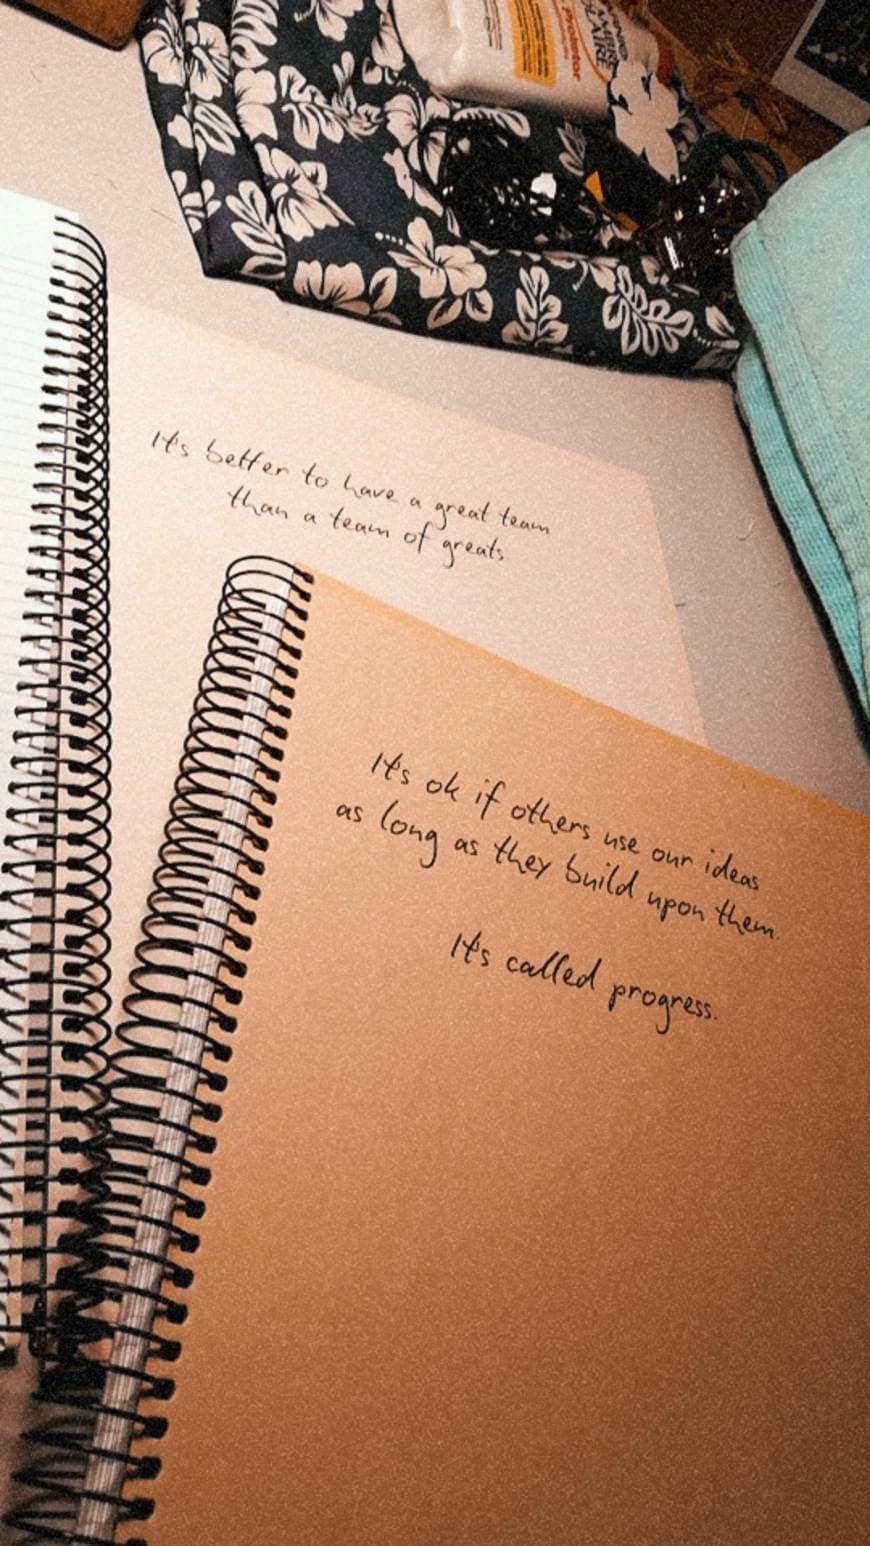 Protector
It's better to have a great team
than a team of greats
It's ok if others use our ideas
as long as they build upon them.
It's called progress.